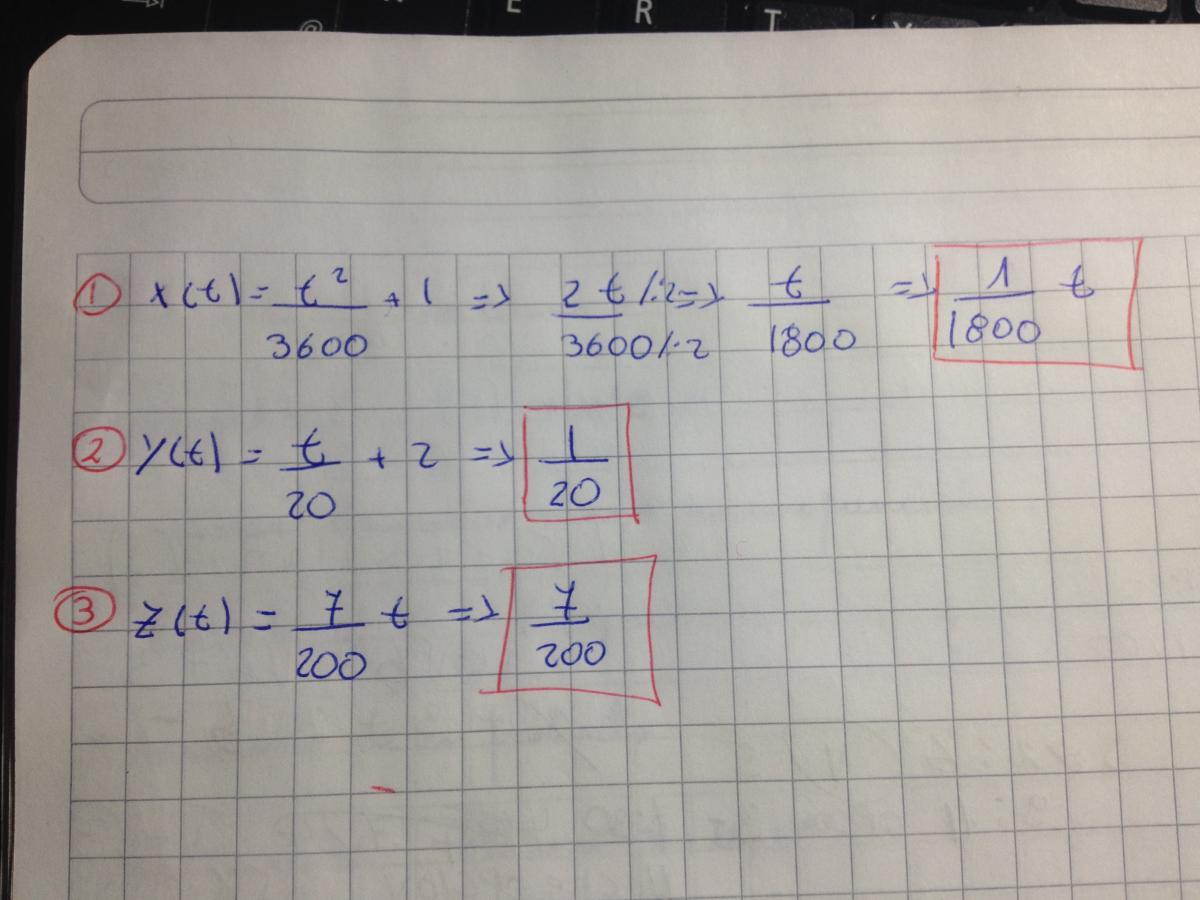 @ E R T Y
① x(t) = t²/3600 + 1 => 2t/:2 / 3600/:2 => t/1800 => 1/1800 t
② y(t) = t/20 + 2 => 1/20
③ z(t) = 7/200 t => 7/200